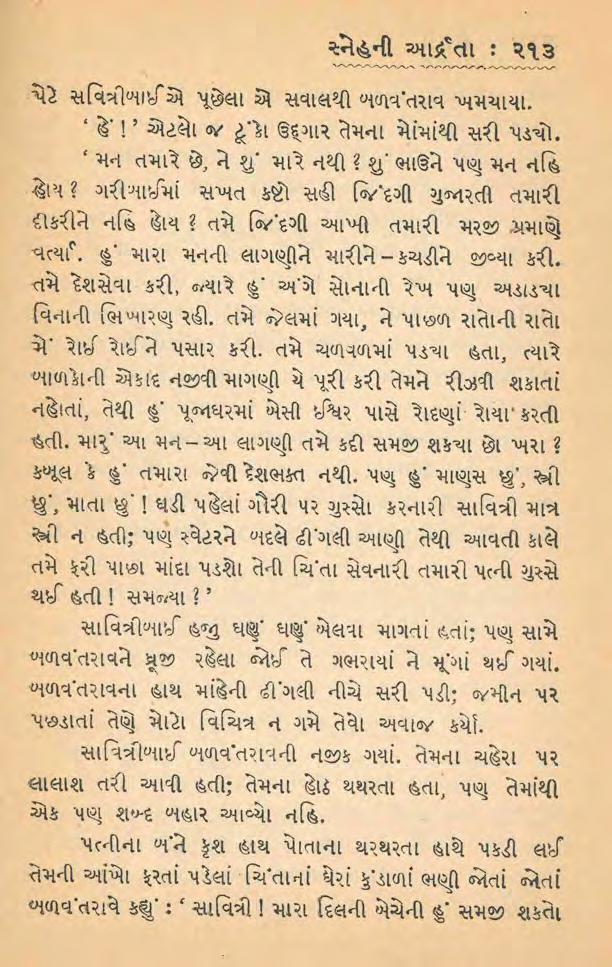 સ્નેહની આર્દ્રતા : ૨૧૩
પેટે સવિત્રીબાઈએ પૂછેલા એ સવાલથી બળવંતરાવ ખમચાયા.
‘ હેં !’ એટલો જ ટૂંકો ઉદ્ગાર તેમના મોંમાંથી સરી પડ્યો.
‘ મન તમારે છે, ને શું મારે નથી ? શું ભાઉને પણ મન નહિ
હોય ? ગરીબાઈમાં સખત કષ્ટો સહી જિંદગી ગુજારતી તમારી
દીકરીને નહિ હોય ? તમે જિંદગી આખી તમારી મરજી પ્રમાણે
વર્ત્યા. હું મારા મનની લાગણીને મારીને – કચડીને જીવ્યા કરી.
તમે દેશસેવા કરી, જ્યારે હું અંગે સોનાની રેખ પણ અડાડ્યા
વિનાની ભિખારણ રહી. તમે જેલમાં ગયા, ને પાછળ રાતોની રાતો
મેં રોઈ રોઈને પસાર કરી. તમે ચળવળમાં પડ્યા હતા, ત્યારે
બાળકોની એકાદ નજીવી માગણી યે પૂરી કરી તેમને રીઝવી શકાતાં
નહોતાં, તેથી હું પૂજાઘરમાં બેસી ઈશ્વર પાસે રોદણાં રોયા કરતી
હતી. મારું આ મન – આ લાગણી તમે કદી સમજી શક્યા છો ખરા ?
કબૂલ કે હું તમારા જેવી દેશભક્ત નથી. પણ હું માણસ છું, સ્ત્રી
છું, માતા છું ! ઘડી પહેલાં ગૌરી પર ગુસ્સો કરનારી સાવિત્રી માત્ર
સ્ત્રી ન હતી; પણ સ્વેટરને બદલે ઢીંગલી આણી તેથી આવતી કાલે
તમે ફરી પાછા માંદા પડશો તેની ચિંતા સેવનારી તમારી પત્ની ગુસ્સે
થઈ હતી ! સમજ્યા ?’
સાવિત્રીબાઈ હજુ ઘણું ઘણું બોલવા માગતાં હતાં; પણ સામે
બળવંતરાવને ધ્રૂજી રહેલા જોઈ તે ગભરાયાં ને મૂંગાં થઈ ગયાં.
બળવંતરાવના હાથ માંહેની ઢીંગલી નીચે સરી પડી; જમીન પર
પછડાતાં તેણે મોટો વિચિત્ર ન ગમે તેવો અવાજ કર્યો.
સાવિત્રીબાઈ બળવંતરાવની નજીક ગયાં. તેમના ચહેરા પર
લાલાશ તરી આવી હતી; તેમના હોઠ થથરતા હતા, પણ તેમાંથી
એક પણ શબ્દ બહાર આવ્યો નહિ.
પત્નીના બંને કૃશ હાથ પોતાના થરથરતા હાથે પકડી લઈ
તેમની આંખો ફરતાં પડેલાં ચિંતાનાં ઘેરાં કુંડાળાં ભણી જોતાં જોતાં
બળવંતરાવે કહ્યું : ‘ સાવિત્રી ! મારા દિલની બેચેની હું સમજી શકતો